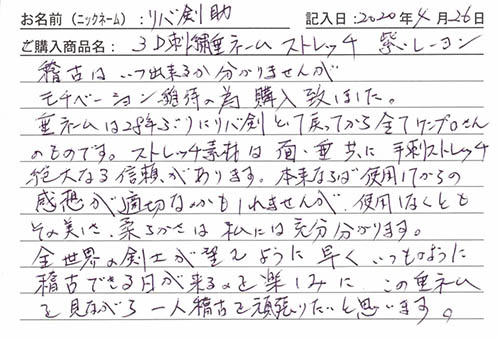 お名前（ニックネーム）：リバ剣助 記入日：2020年4月26日
ご購入商品名：3D刺繍垂ネーム ストレッチ 紫レーヨン
稽古はいつ出来るか分かりませんが
モチベーション維持の為購入致しました。
垂ネームは28年ぶりにリバ剣として戻ってから全てワンプロさん
のものです。ストレッチ素材は面・垂共に手刺ストレッチ
絶大なる信頼があります。本来ならば使用してからの
感想が適切なのかもしれませんが、使用しなくとも
その美しさ、柔らかさは私には充分分かります。
全世界の剣士が望むように早くいつものように
稽古できる日が来るのを楽しみに、この垂ネーム
を見ながら一人稽古を頑張りたいと思います。